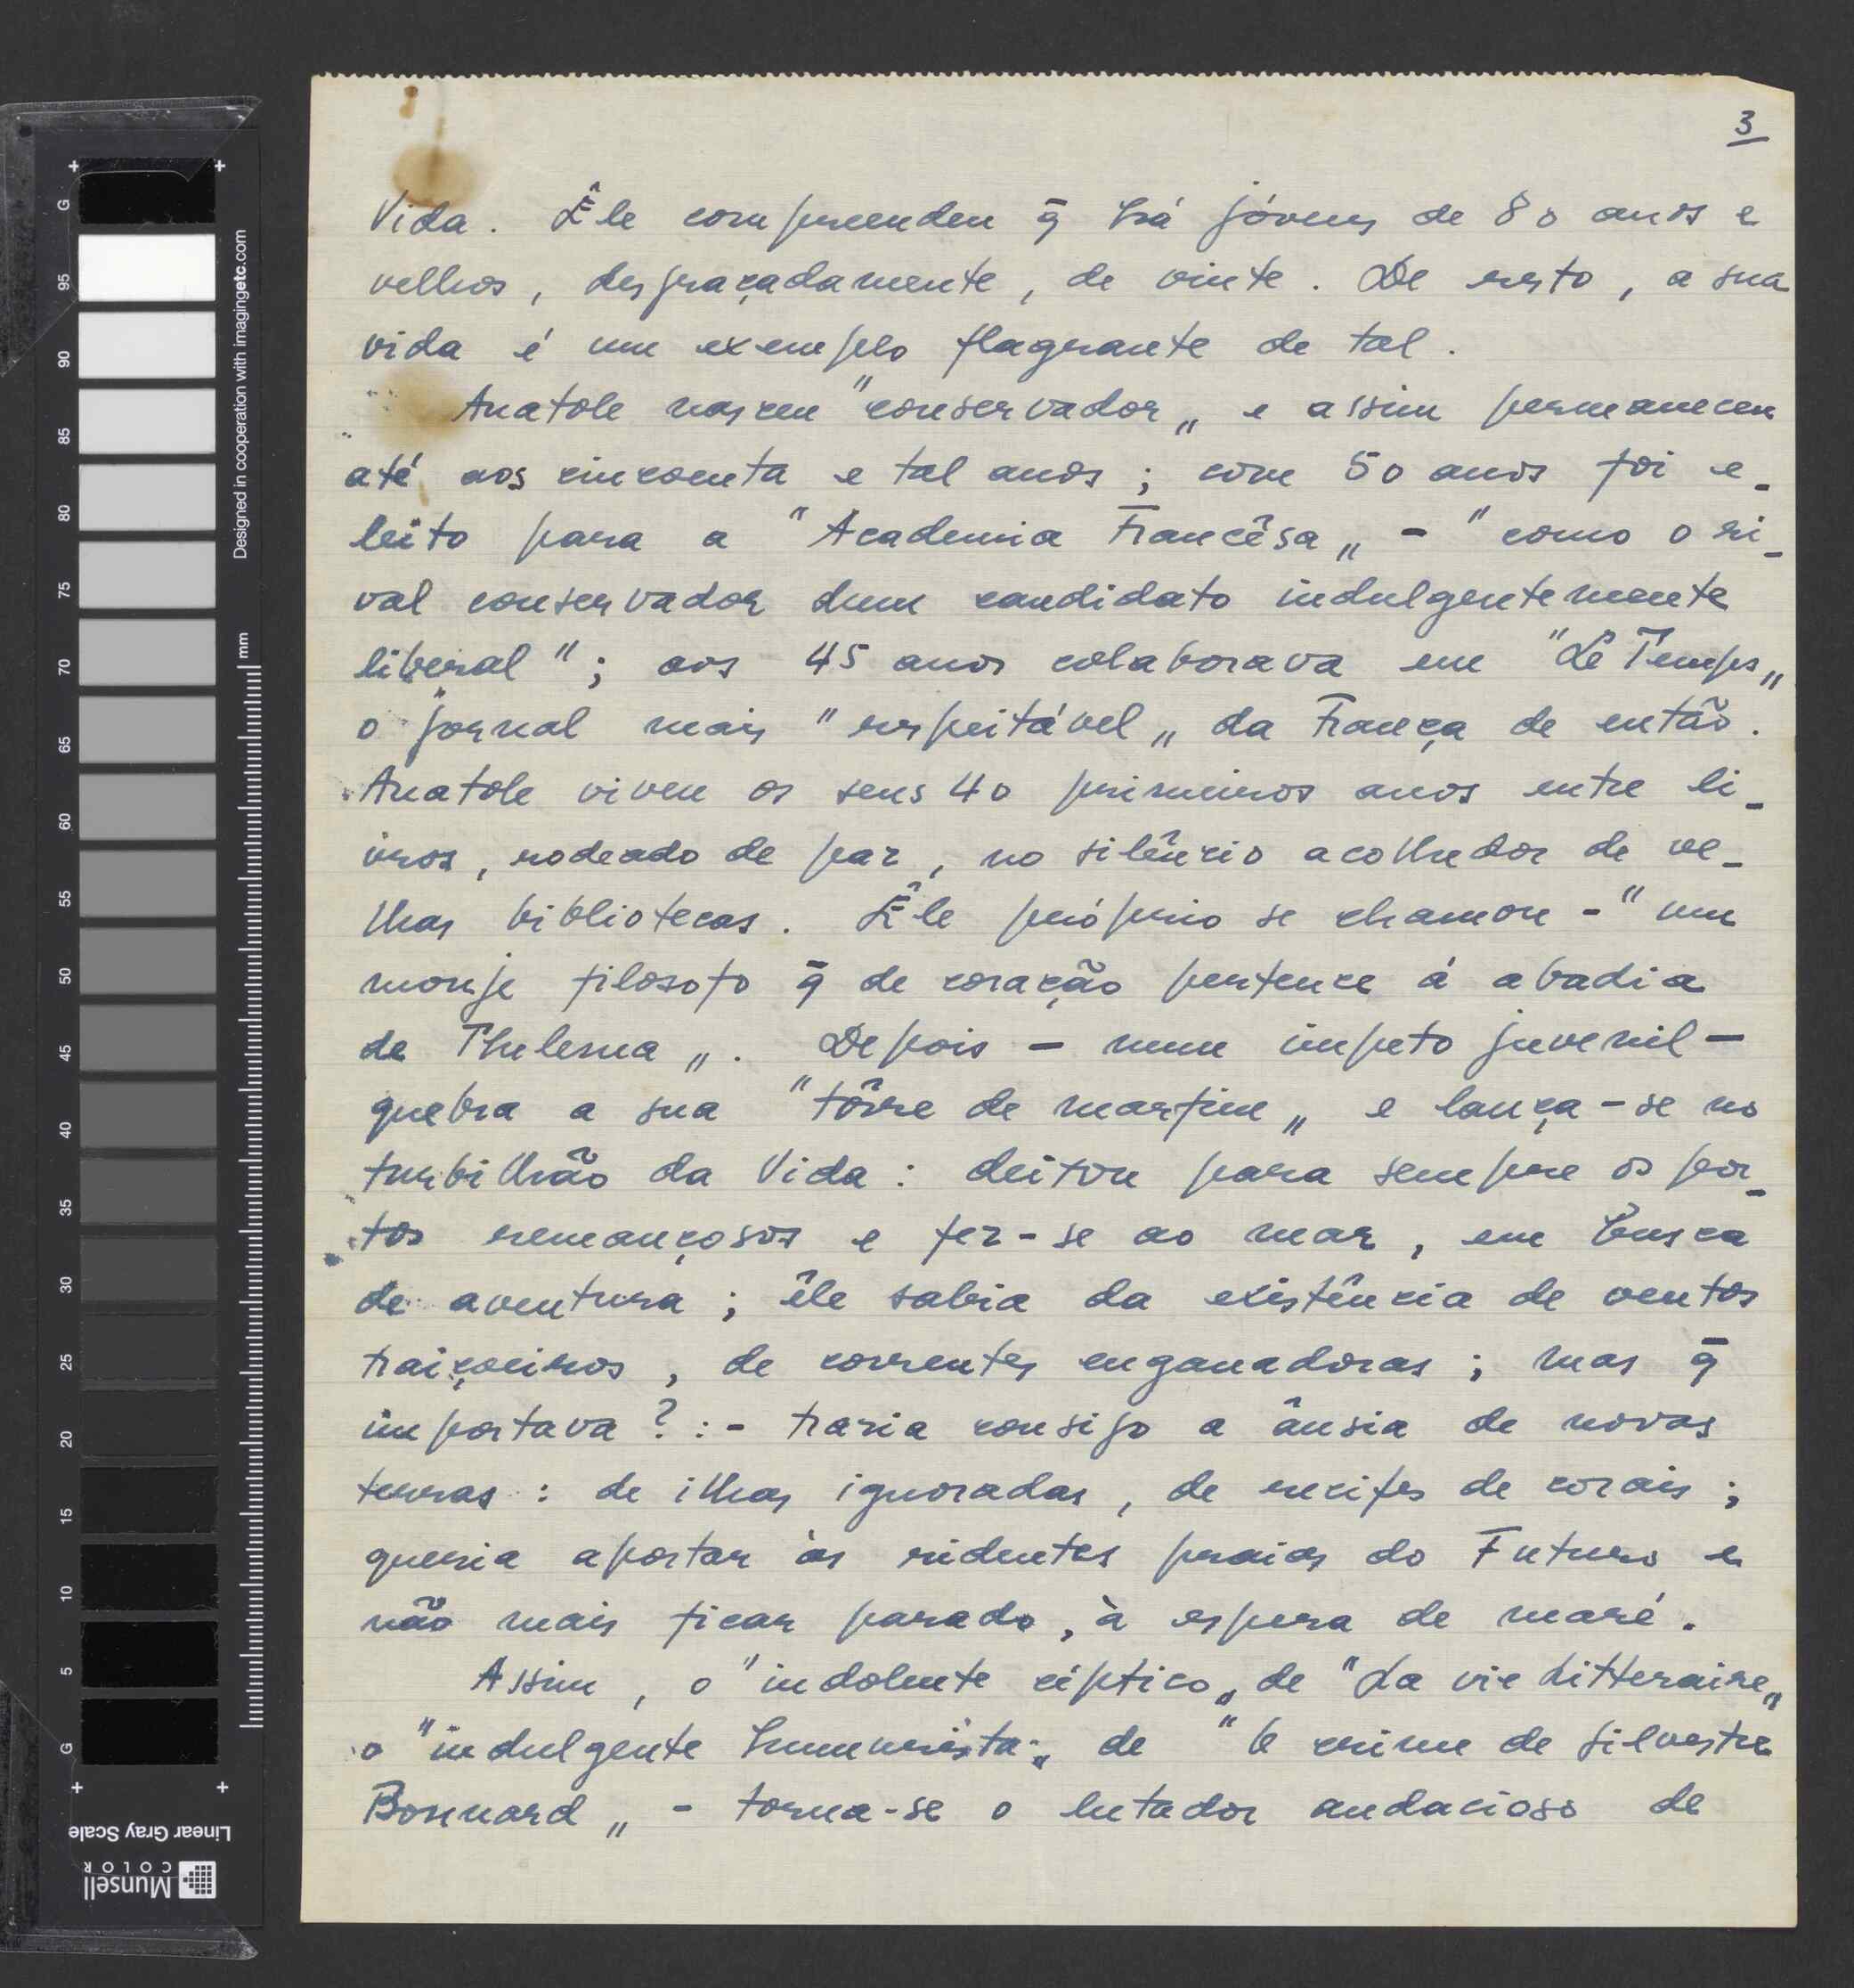 3
Vida. Êle compreendeu q̄ há jóvens de 80 anos e
velhos, desgraçadamente, de vinte. De resto, a sua
vida é um exemplo flagrante de tal.
Anatole nasceu "conservador„ e assim permaneceu
até aos cincoenta e tal anos; com 50 anos foi e-
leito para a "Academia Francêsa„ - "como o ri-
val conservador dum candidato indulgentemente
liberal"; aos 45 anos colaborava em "Le Temps„
o jornal mais "respeitável„ da França de então.
Anatole viveu os seus 40 primeiros anos entre li-
vros, rodeado de paz, no silêncio acolhedor de ve-
lhas bibliotecas. Êle próprio se chamou - "um
monje filosofo q̄ de coração pertence á abadia
de Thelema„. Depois — num impeto juvenil —
quebra a sua "tôrre de marfim„ e lança-se no
turbilhão da Vida: deitou para sempre os por-
tos remançosos e fez-se ao mar, em busca
de aventura; êle sabia da existência de ventos
traiçoeiros, de correntes enganadoras; mas q̄
importava?:- trazia consigo a ânsia de novas
terras: de ilhas ignoradas, de recifes de corais;
queria aportar às ridentes praias do Futuro e
não mais ficar parado, à espera de maré.
Assim, o "indolente céptico„ de "La vie Litteraire„
o "indulgente humanista„ de "O crime de Silvestre
Bonnard„ - torna-se o lutador audacioso de
Designed in cooperation with imagingetc.com
mm
G
95
90
85
80
75
70
65
60
55
50
45
40
35
30
25
20
15
10
5
G
Linear Gray Scale
Munsell
COLOR